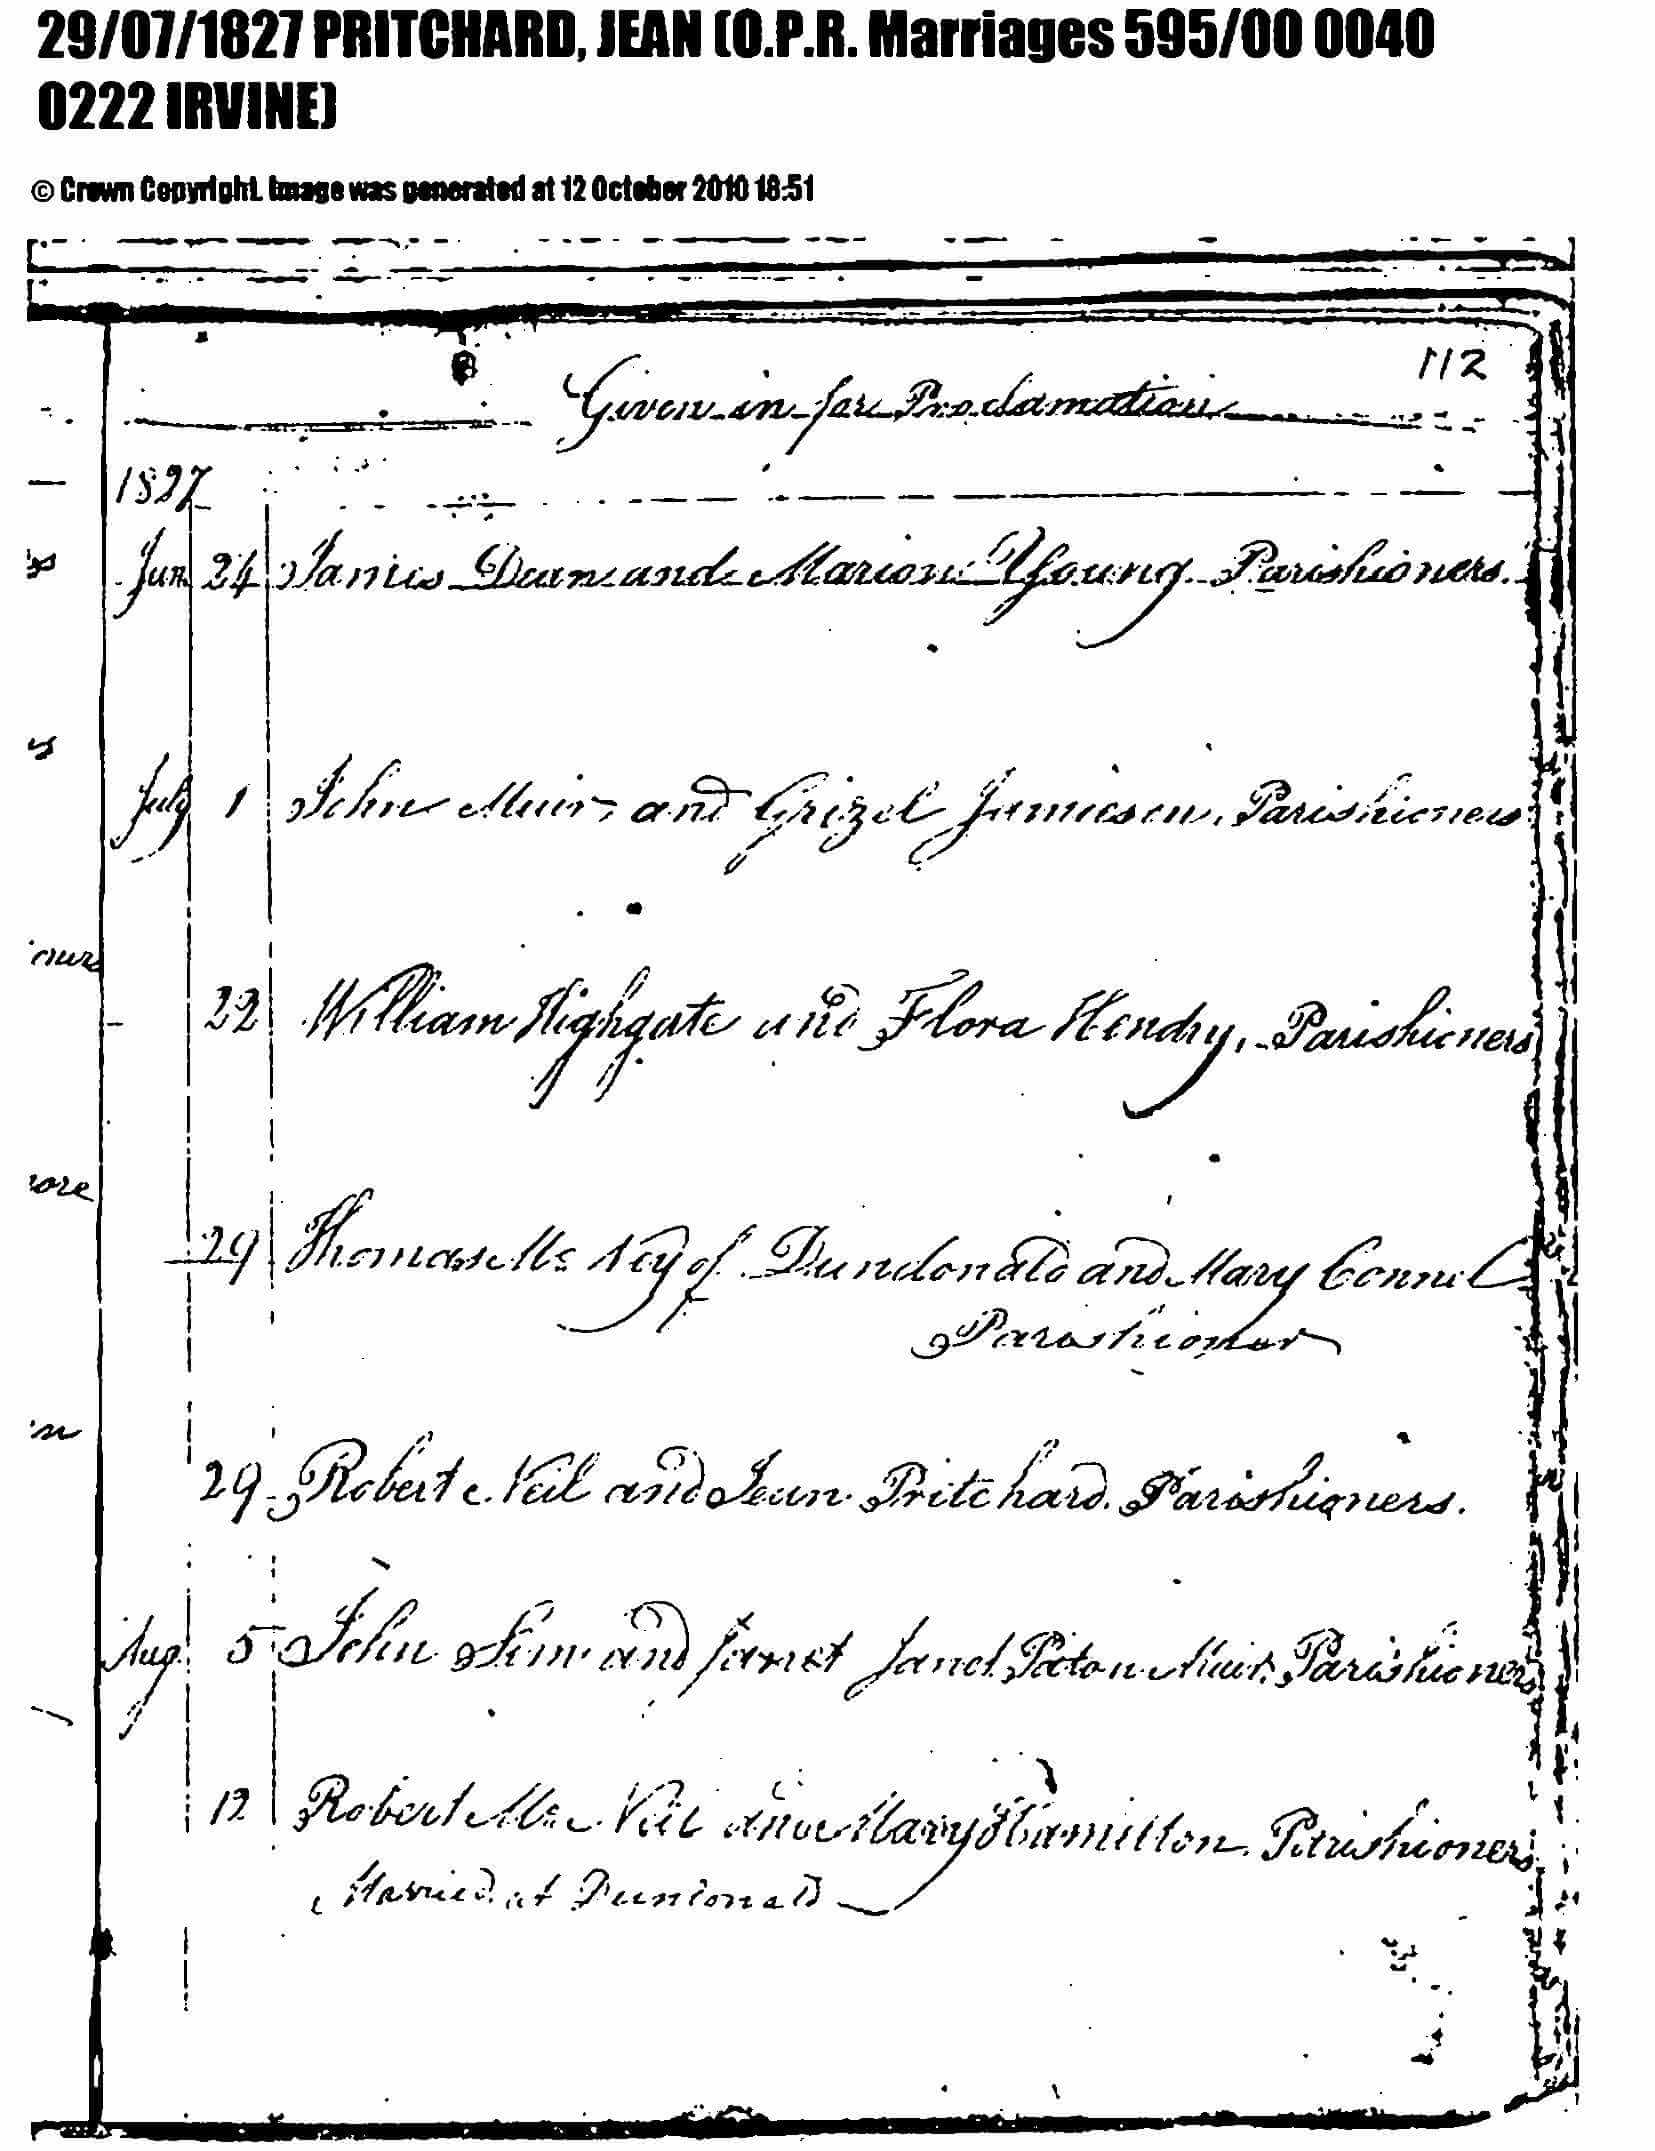 29/07/1827 PRITCHARD, JEAN (O.P.R. Marriages 595/00 0040
0222 IRVINE)
© Crown Copyright. Image was generated at 12 October 2010 18:51
112
Given in for Proclamation
1827
Jun 24 James Dean and Marion Young Parishioners.
July 1 John Muir and Grizel Jamieson, Parishioners
22 William Highgate and Flora Hendry, Parishioners
29 Thomas Mc Key of Dundonald and Mary Connel
Parishioner
29 Robert Neil and Jean Pritchard Parishioners.
Aug 5 John Sim and Janet Paton Muir, Parishioners
12 Robert Mc Neil and Mary Hamilton Parishioners
Married at Dundonald